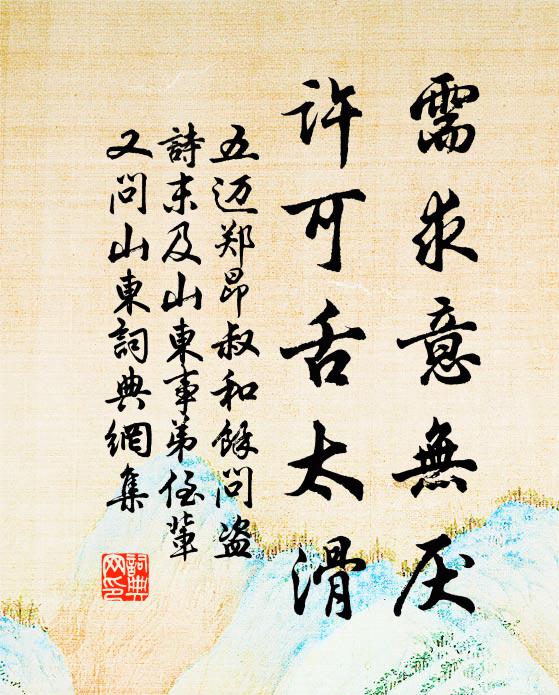 需求意無厌
許可舌太滑
五迈郑昂叔和馀问盗
詩末及山東事弟侄輩
又問山東詞典網集
詞典